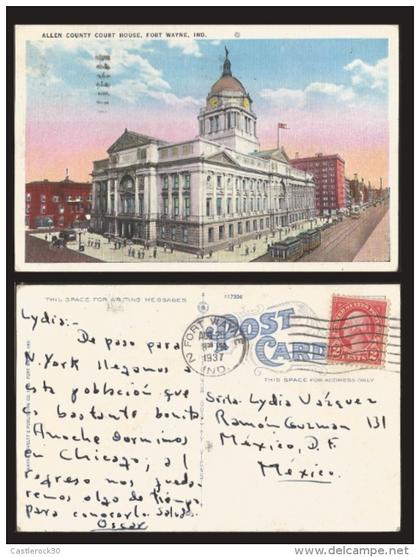 ALLEN COUNTY COURT HOUSE, FORT WAYNE, IND.
THIS SPACE FOR WRITING MESSAGES
117336
POST
CARD
THIS SPACE FOR ADDRESS ONLY
FORT WAYNE
1937
IND.
Lydia:-
De paso para
N. York llegamos a
esta población que
es bastante bonita
Anoche dormimos
en Chicago; al
regreso nos queda
remos algo de tiempo
para conocerla. Saludos.
Oscar
Srita. Lydia Vázquez
Ramón Guzman 131
México, D.F.
México.
Castlerock30
http://www.delcampe.net